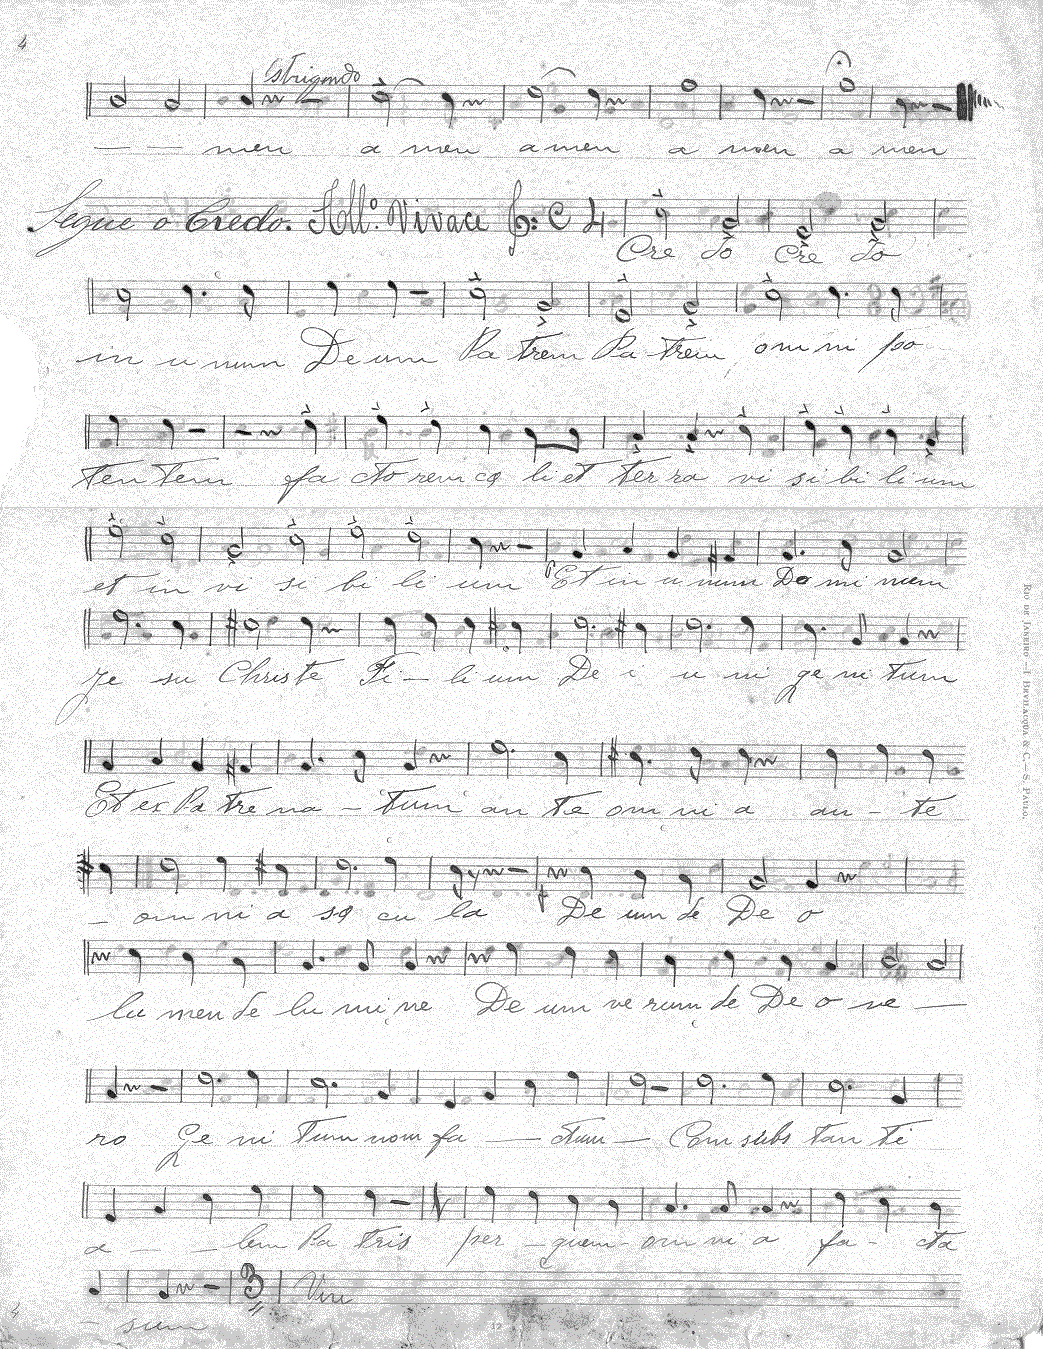 4
— — men a men a men a men a men
Segue o Credo. All.º Vivace C 4
Cre do Cre do
in u num Deum Pa trem Pa trem om ni po
ten tem fa cto rem cœ li et ter ra vi si bi li um
et in vi si bi li um Et in u num Do mi num
Je su Christe Fi — li um De i u ni ge ni tum
Et ex Pa tre na — tum an te om ni a an - te
— om ni a sæ cu la De um de De o
lu men de lu mi ne De um ve rum de De o ve —
ro Ge ni tum nom fa — ctum — Com subs tan ti
a — — lem Pa tris per — quem - om ni a fa - cta
3
— sum
RIO DE JANEIRO — I. BEVILACQUA & C. — S. PAULO.
12
4